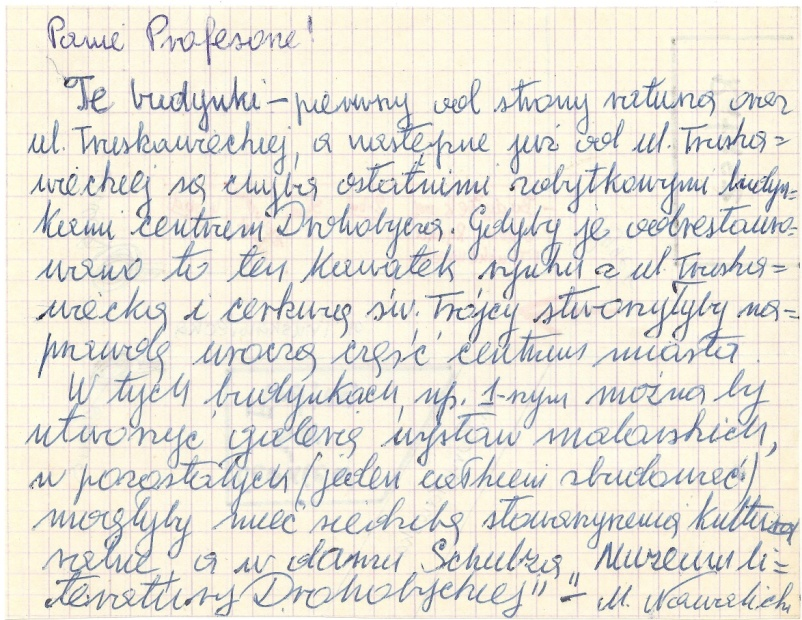 Panie Profesorze!
Te budynki – pierwszy od strony ratusza oraz
ul. Truskawieckiej, a następne już od ul. Truska=
wieckiej są chyba ostatnimi zabytkowymi budyn=
kami centrum Drohobycza. Gdyby je odrestauro=
wano to ten kawałek rynku z ul. Truska=
wiecką i cerkwią św. Trójcy stworzyłyby na=
prawdę uroczą część centrum miasta.
W tych budynkach, np. 1-szym można by
utworzyć galerię wystaw malarskich,
w pozostałych (jeden całkiem zbudować)
mogłyby mieć siedzibę stowarzyszenia kultu
ralne a w domu Schulza „Muzeum li=
teratury Drohobyckiej" – M.